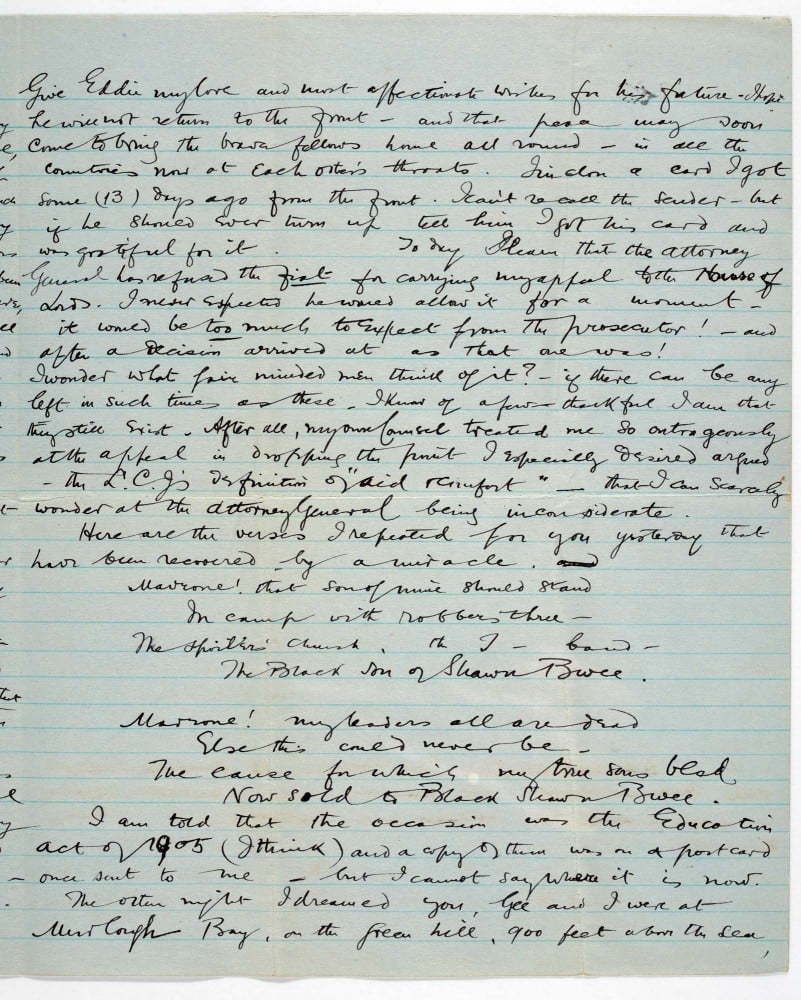 Give Eddie my love and most affectionate wishes for his future - I hope
he will not return to the front - and that peace may soon
come to bring the brave fellows home all round - in all the
countries now at each other's throats. Find on a card I got
some (13) days ago from the front. I can't recall the sender - but
if he should ever turn up tell him I got his card and
was grateful for it. Today I learn that the Attorney
General has refused the fiat for carrying my appeal to the House of
Lords. I never expected he would allow it for a moment -
it would be too much to expect from the prosecutor! - and
after a decision arrived at as that one was!
I wonder what fair minded men think of it? - if there can be any
left in such times as these - I know of a few - thankful I am that
they still exist. After all, my own Counsel treated me so outrageously
at the appeal in dropping the point I especially desired argued
- the L.C.J's definition of "aid & comfort" - that I can scarcely
wonder at the Attorney General being inconsiderate.
Here are the verses I repeated for you yesterday that
have been recovered by a miracle.
Mavrone! that son of mine should stand
In camp with robbers three -
The spoiler's Church, th I - band -
The Black Son of Shawn Bwee.
Mavrone! my leaders all are dead
Else this could never be -
The cause for which my true sons bled
Now sold to Black Shawn Bwee.
I am told that the occasion was the Education
Act of 1905 (I think) and a copy of them was on a postcard
- once sent to me - but I cannot say where it is now.
The other night I dreamed you, Gee and I were at
Murlough Bay, on the green hill, 900 feet above the sea,